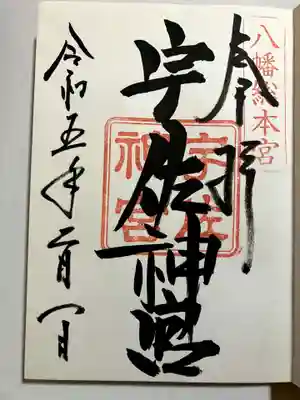 八幡総本宮
奉拝
宇佐神宮
宇佐神宮
令和五年二月一日